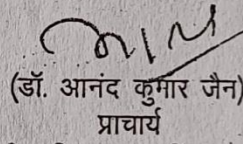 (डॉ. आनंद कुमार जैन)
प्राचार्य